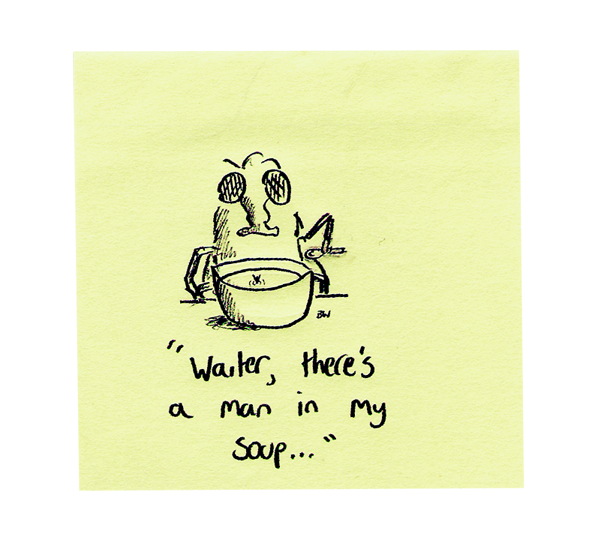 BW
"Waiter, there's
a man in my
soup..."